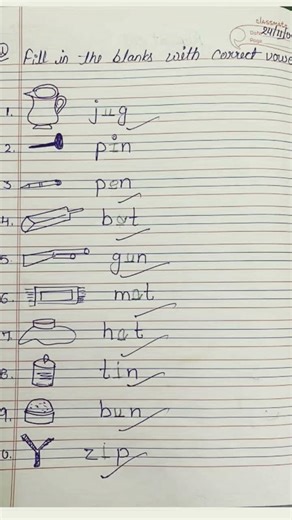 classmate
Fill in the blanks with correct vowe
1. jug
2. pin
3. pen
4. bat
5. gun
6. mat
7. hat
8. tin
9. bun
0. zip